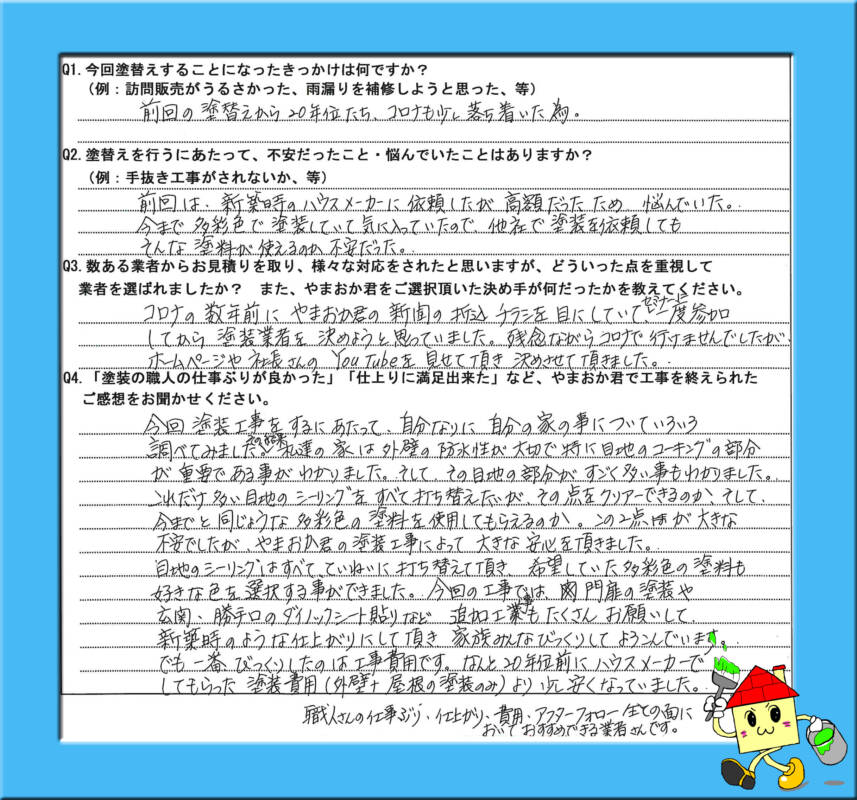 Q1. 今回塗替えすることになったきっかけは何ですか？
（例：訪問販売がうるさかった、雨漏りを補修しようと思った、等）
前回の塗替えから20年位たち、コロナも少し落ち着いた為。
Q2. 塗替えを行うにあたって、不安だったこと・悩んでいたことはありますか？
（例：手抜き工事がされないか、等）
前回は、新築時のハウスメーカーに依頼したが高額だったため 悩んでいた。
今まで多彩色で塗装していて気に入っていたので、他社で塗装を依頼しても
そんな塗料が使えるのか不安だった。
Q3. 数ある業者からお見積りを取り、様々な対応をされたと思いますが、どういった点を重視して
業者を選ばれましたか？ また、やまおか君をご選択頂いた決め手が何だったかを教えてください。
コロナの数年前にやまおか君の新聞の折込チラシを目にしていてセミナーに一度参加
してから塗装業者を決めようと思っていました。残念ながらコロナで行けませんでしたが、
ホームページや社長さんのYouTubeを見せて頂き決めさせて頂きました。
Q4. 「塗装の職人の仕事ぶりが良かった」「仕上りに満足出来た」など、やまおか君で工事を終えられた
ご感想をお聞かせください。
今回塗装工事をするにあたって、自分なりに自分の家の事についていろいろ
調べてみました。その結果私達の家は外壁の防水性が大切で特に目地のコーキングの部分
が重要である事がわかりました。そして、その目地の部分がすごく多い事もわかりました。
これだけ多い目地のシーリングをすべて打ち替えたいが、その点をクリアーできるのか、そして、
今までと同じような多彩色の塗料を使用してもらえるのか。この2点が大きな
不安でしたが、やまおか君の塗装工事によって大きな安心を頂きました。
目地のシーリングはすべてていねいに打ち替えて頂き、希望していた多彩色の塗料も
好きな色を選択する事ができました。今回の工事では、門扉の塗装や
玄関、勝手口のダイノックシート貼りなど 追加工事もたくさんお願いして、
新築時のような仕上がりにして頂き 家族みんなびっくりしてよろこんでいます。
でも一番びっくりしたのは工事費用です。なんと20年位前にハウスメーカーで
してもらった塗装費用（外壁+屋根の塗装のみ）より少し安くなっていました。
職人さんの仕事ぶり、仕上がり、費用、アフターフォロー全ての面に
おいておすすめできる業者さんです。